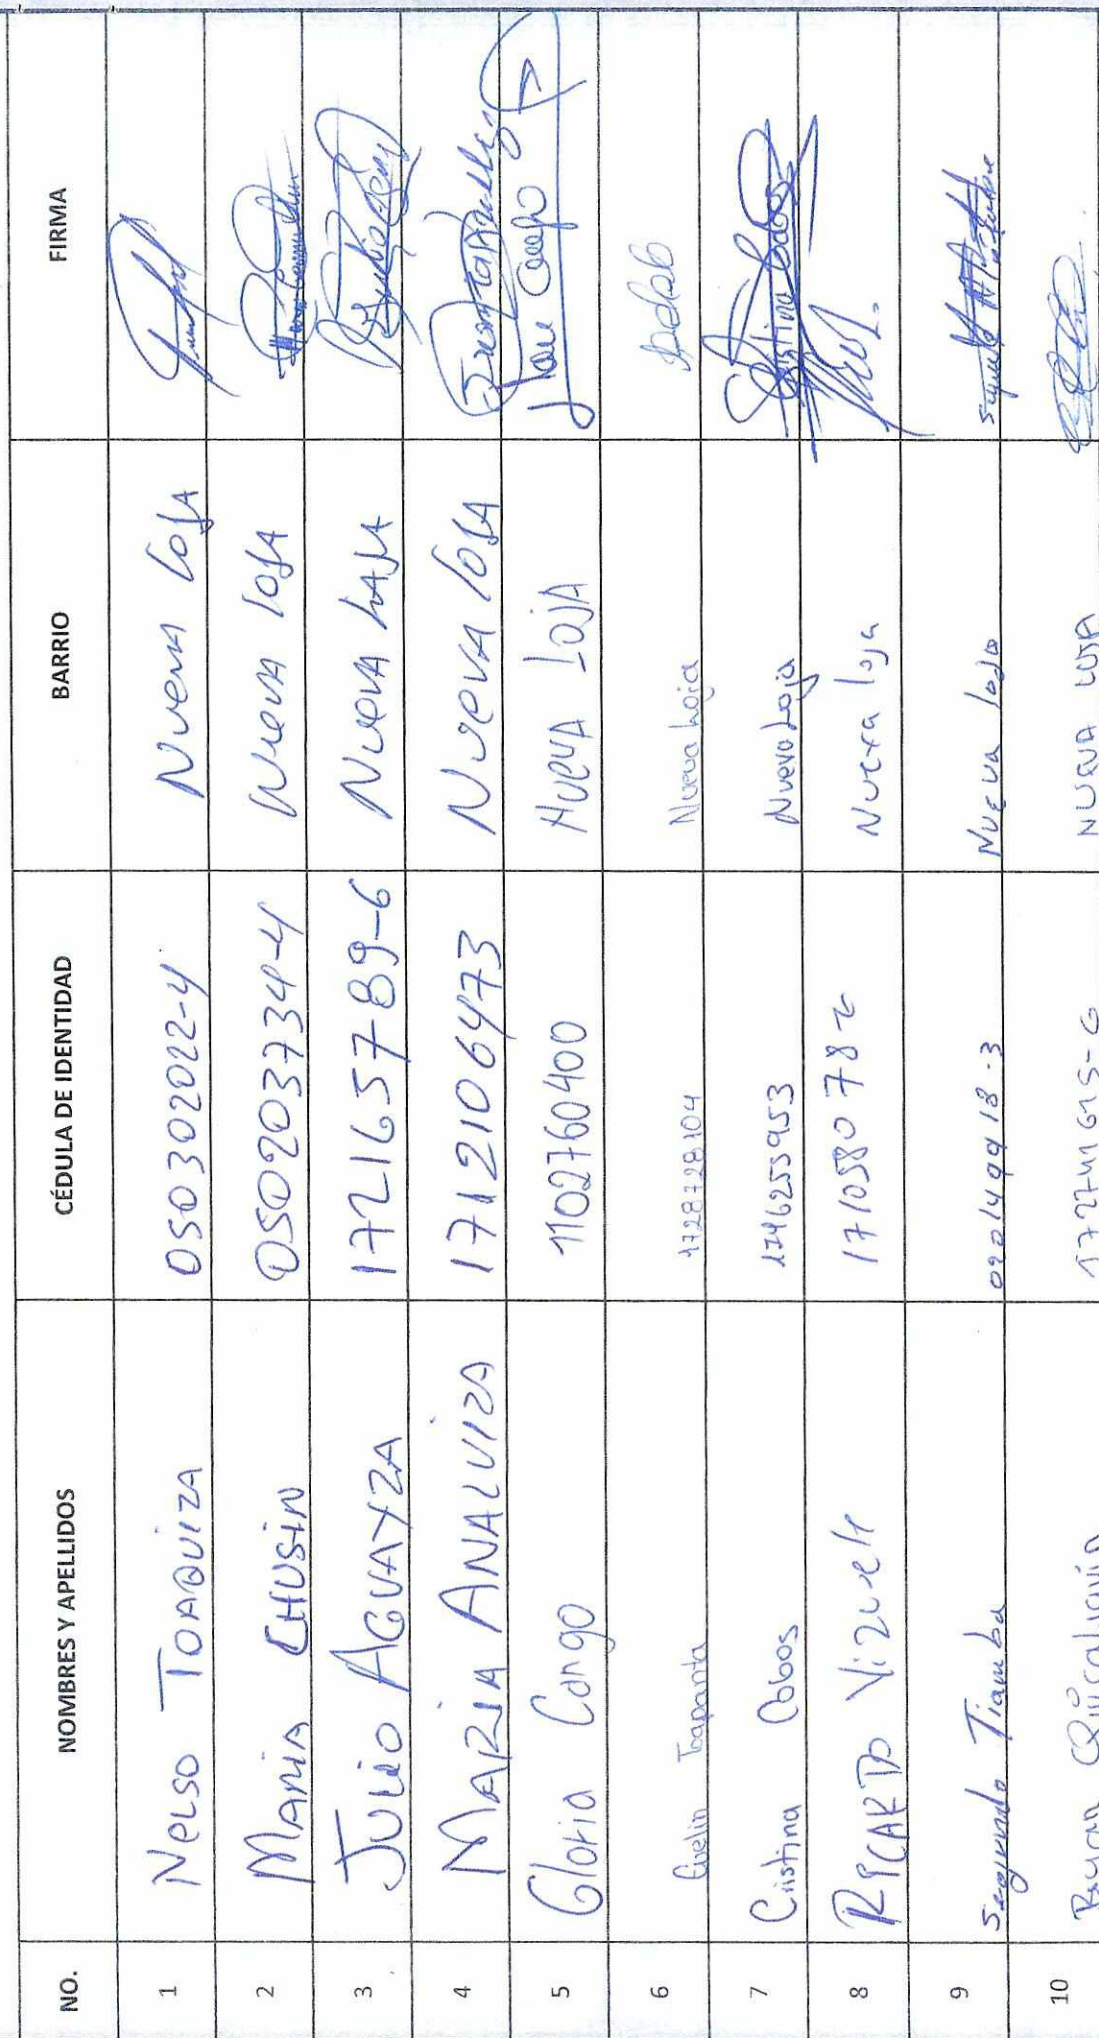 NO. NOMBRES Y APELLIDOS CÉDULA DE IDENTIDAD BARRIO FIRMA
1 Nelso TOAQUIZA 050302022-4 Nueva LOJA
2 MARIA CHUSIN 050203734-4 Nueva LOJA
3 JULIO AGUAYZA 172165789-6 NUEVA LAJA
4 MARIA ANALUIZA 1712106473 NUEVA LOJA
5 Gloria Congo 1102760400 NUEVA LOJA
6 Evelin Toapanta 1728728104 Nueva Loja
7 Cristina Cobos Nueva Loja Cristina Cobos
8 RICARDO Vizuete 171058078 Nueva loja
9 Segundo Tiamba 020149918-3 Nueva loja Segundo
10 NUEVA LOJA